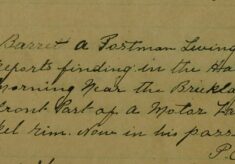 Barret a Postman Living
reports finding in the Ha
morning Near the Brickla
Front Part of a Motor Ha
kel rim. Now in his posse
P.